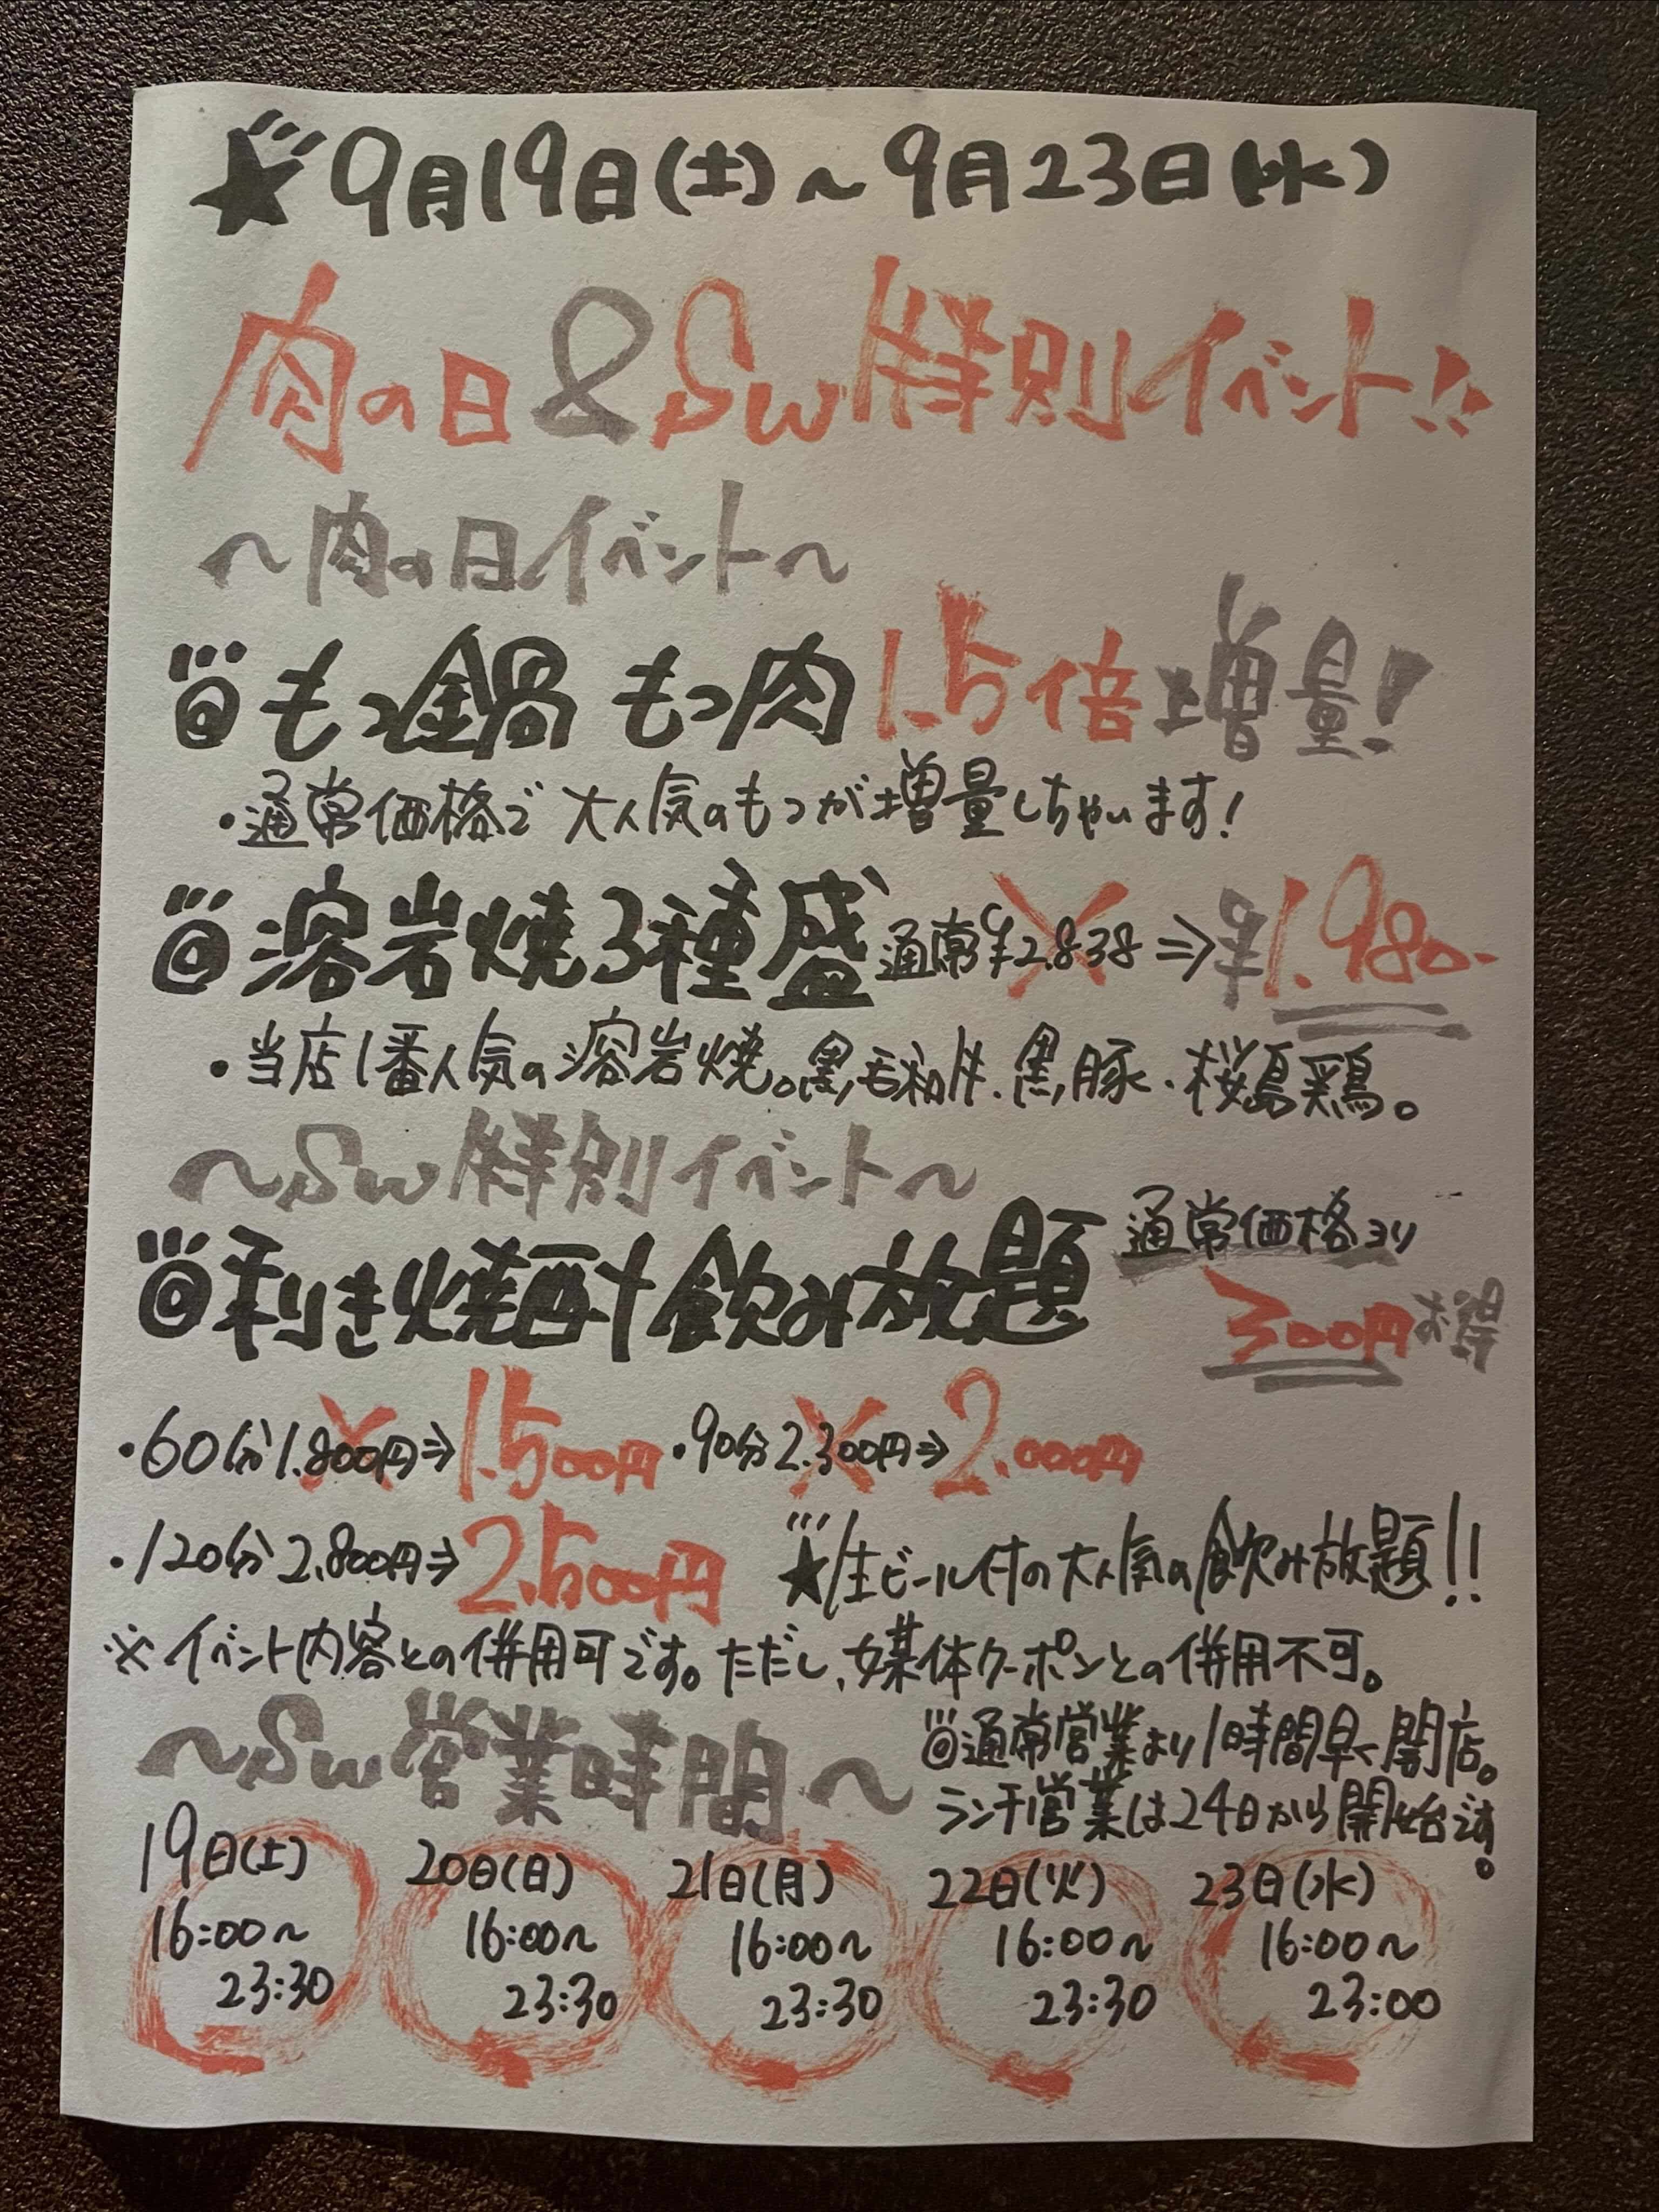 ★9月19日(土)～9月23日(水)
肉の日&SW特別イベント!!
～肉の日イベント～
◎もつ鍋 もつ肉1.5倍増量!
・通常価格で大人気のもつが増量しちゃいます!
◎溶岩焼3種盛 通常¥2.838⇒¥1.980-
・当店1番人気の溶岩焼。黒毛和牛、黒豚、桜島鶏。
～SW特別イベント～
◎利き焼酎飲み放題 通常価格より
300円お得
・60分1.800円⇒1.500円・90分2.300円⇒2.000円
・120分2.800円⇒2.500円 ★生ビール付の大人気の飲み放題!!
※イベント内容との併用可です。ただし、媒体クーポンとの併用不可。
～SW営業時間～
◎通常営業より1時間早く開店。
ランチ営業は24日から開始です。
19日(土) 20日(日) 21日(月) 22日(火) 23日(水)
16:00～ 16:00～ 16:00～ 16:00～ 16:00～
23:30 23:30 23:30 23:30 23:00